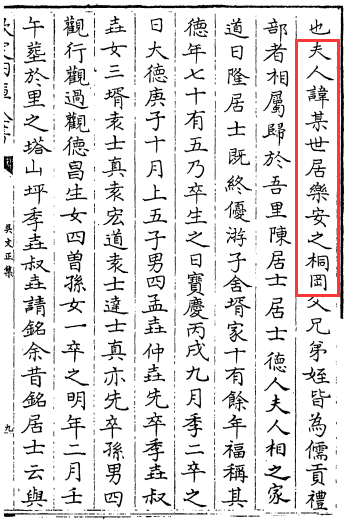 也夫人諱某世居樂安之桐岡父兄弟姪皆為儒貢禮
部者相屬歸於吾里陳居士居士德人夫人相之家
道日隆居士既終優游子舍壻家十有餘年福稱其
德年七十有五乃卒生之日寶慶丙戌九月季二卒之
日大德庚子十月上五子男四孟垚仲垚先卒季垚叔
垚女三壻袁士真袁宏道袁士達士真亦先卒孫男四
觀行觀過觀德昌生女四曽孫女一卒之明年二月壬
午葬於里之塔山坪季垚叔垚請銘余昔銘居士云與
吳文正集
九